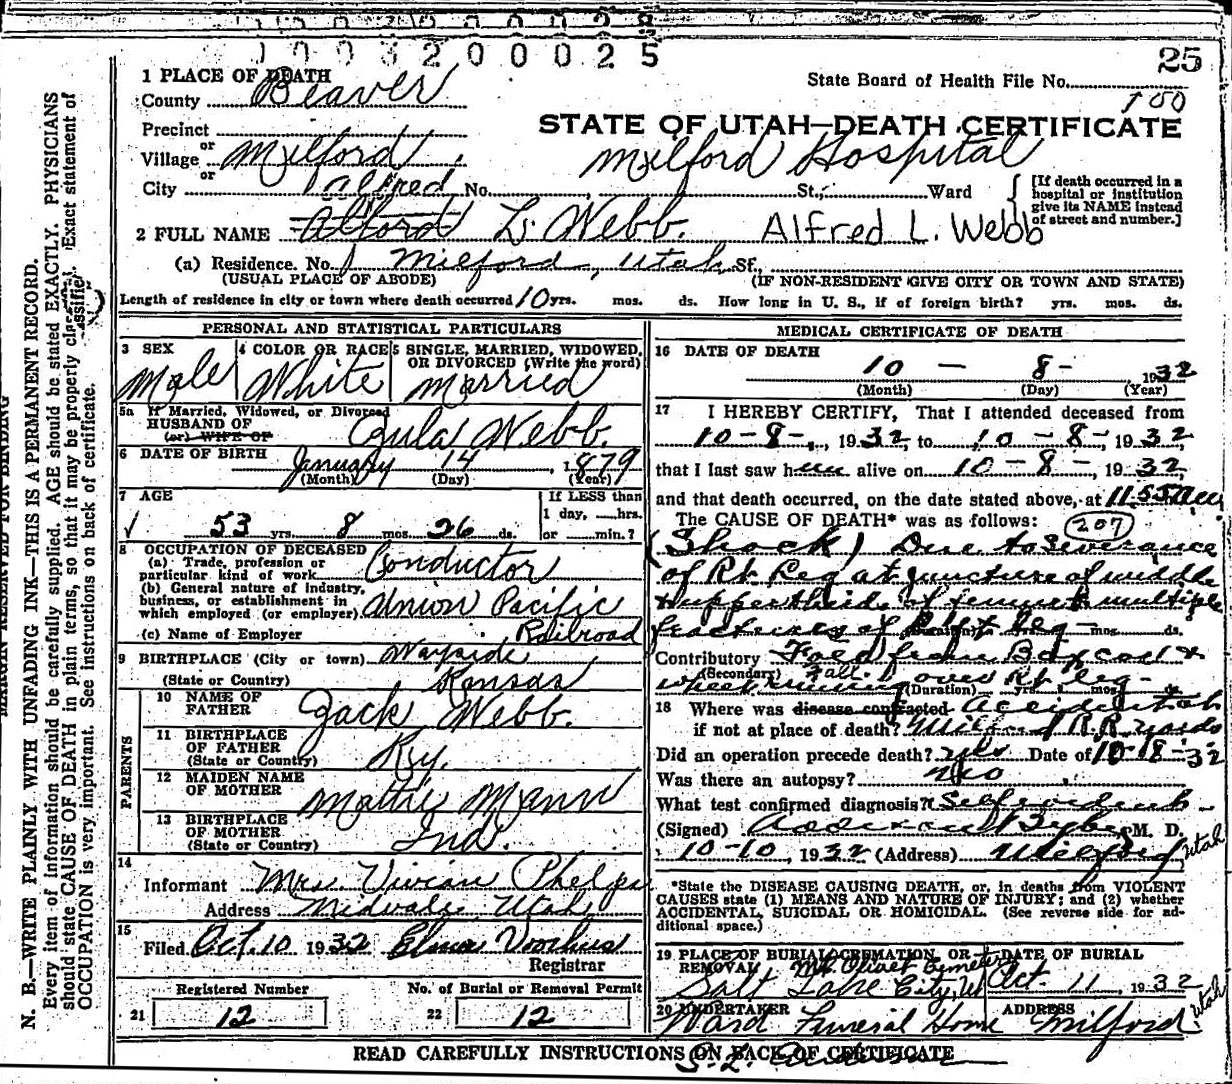 1003200025
25
1 PLACE OF DEATH
County Beaver
State Board of Health File No.
100
Precinct
STATE OF UTAH—DEATH CERTIFICATE
or
Village Milford
Milford Hospital
or
City No. St., Ward
[If death occurred in a hospital or institution give its NAME instead of street and number.]
Alfred
2 FULL NAME Alford L. Webb. Alfred L. Webb
(a) Residence. No. Milford, Utah St.,
(USUAL PLACE OF ABODE) (IF NON-RESIDENT GIVE CITY OR TOWN AND STATE)
Length of residence in city or town where death occurred 10 yrs. mos. ds. How long in U. S., if of foreign birth? yrs. mos. ds.
PERSONAL AND STATISTICAL PARTICULARS
3 SEX
Male
4 COLOR OR RACE
White
5 SINGLE, MARRIED, WIDOWED,
OR DIVORCED (Write the word)
Married
5a If Married, Widowed, or Divorced
HUSBAND OF
(or) WIFE OF
Webb.
6 DATE OF BIRTH January 14, 1879
(Month) (Day) (Year)
7 AGE
53 yrs. 8 mos. 26 ds.
If LESS than
1 day, hrs.
or min.?
8 OCCUPATION OF DECEASED
(a) Trade, profession or
particular kind of work Conductor
(b) General nature of industry,
business, or establishment in
which employed (or employer) Union Pacific
(c) Name of Employer Railroad
9 BIRTHPLACE (City or town) Wayside
(State or Country) Kansas
PARENTS
10 NAME OF
FATHER Jack Webb.
11 BIRTHPLACE
OF FATHER
(State or Country) Ky.
12 MAIDEN NAME
OF MOTHER Mattie Mann
13 BIRTHPLACE
OF MOTHER
(State or Country) Ind.
14
Informant Mrs. Vivian Phelps
Address Midvale, Utah
15
Filed Oct. 10 1932 Elmer Voorhees
Registrar
Registered Number
21 12
No. of Burial or Removal Permit
22 12
MEDICAL CERTIFICATE OF DEATH
16 DATE OF DEATH
10 — 8 - 1932
(Month) (Day) (Year)
17 I HEREBY CERTIFY, That I attended deceased from
10-8-, 1932, to 10-8-, 1932,
that I last saw him alive on 10-8-, 1932,
and that death occurred, on the date stated above, at 11:55 am
The CAUSE OF DEATH* was as follows: 207
(Shock) Due to Severance
of Rt Leg at juncture of middle
& upper thirds of femur & multiple
fractures of left leg-
(Duration) yrs. mos. ds.
Contributory Fall from Box car &
(Secondary)
wheel running over Rt leg-
(Duration) yrs. mos. ds.
18 Where was disease contracted Accidental
if not at place of death? Milford R.R. yards
Did an operation precede death? yes Date of 10-8-32
Was there an autopsy? no
What test confirmed diagnosis? Self evident
(Signed) M. D.
10-10, 1932 (Address) Milford Utah
*State the DISEASE CAUSING DEATH, or, in deaths from VIOLENT
CAUSES state (1) MEANS AND NATURE OF INJURY; and (2) whether
ACCIDENTAL, SUICIDAL OR HOMICIDAL. (See reverse side for ad-
ditional space.)
19 PLACE OF BURIAL, CREMATION, OR
REMOVAL Mt. Olivet Cemetery
Salt Lake City, Ut
DATE OF BURIAL
Oct 11, 1932
20 UNDERTAKER
Ward Funeral Home
ADDRESS
Milford. Utah
READ CAREFULLY INSTRUCTIONS ON BACK OF CERTIFICATE
MARGIN RESERVED FOR BINDING
N. B.—WRITE PLAINLY WITH UNFADING INK—THIS IS A PERMANENT RECORD.
Every item of information should be carefully supplied. AGE should be stated EXACTLY. PHYSICIANS
should state CAUSE OF DEATH in plain terms, so that it may be properly classified. Exact statement of
OCCUPATION is very important. See instructions on back of certificate.